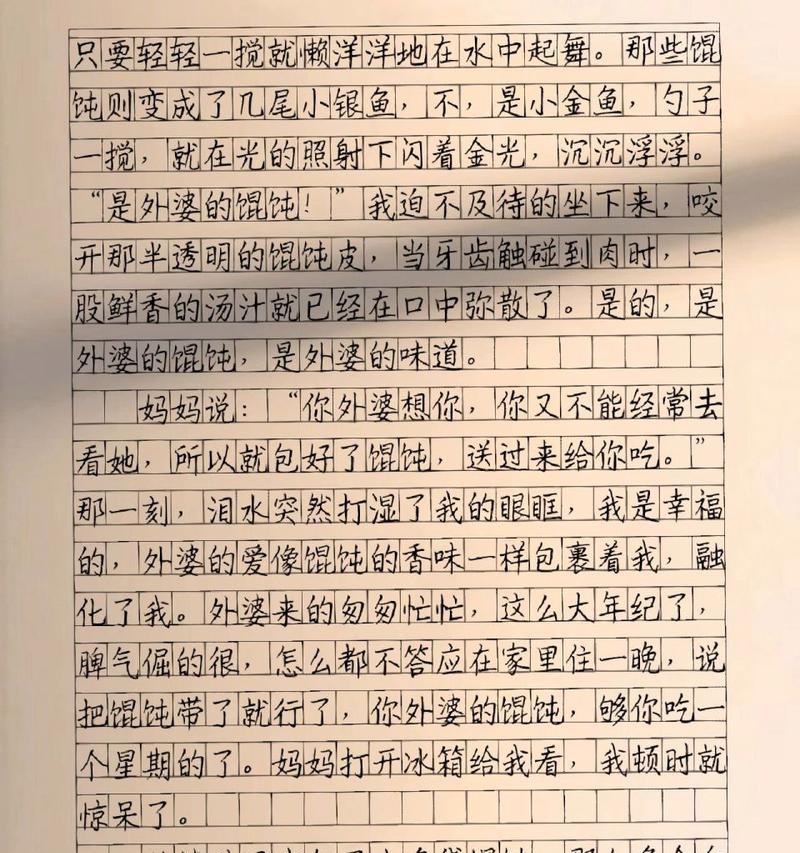 只要轻轻一搅就懒洋洋地在水中起舞。那些馄
饨则变成了几尾小银鱼，不，是小金鱼，勺子
一搅，就在光的照射下闪着金光，沉沉浮浮。
“是外婆的馄饨！”我迫不及待的坐下来，咬
开那半透明的馄饨皮，当牙齿触碰到肉时，一
股鲜香的汤汁就已经在口中弥散了。是的，是
外婆的馄饨，是外婆的味道。
妈妈说：“你外婆想你，你又不能经常去
看她，所以就包好了馄饨，送过来给你吃。”
那一刻，泪水突然打湿了我的眼眶，我是幸福
的，外婆的爱像馄饨的香味一样包裹着我，融
化了我。外婆来的匆匆忙忙，这么大年纪了，
脾气倔的很，怎么都不答应在家里住一晚，说
把馄饨带了就行了，你外婆的馄饨，够你吃一
个星期的了。妈妈打开冰箱给我看，我顿时就
惊呆了。